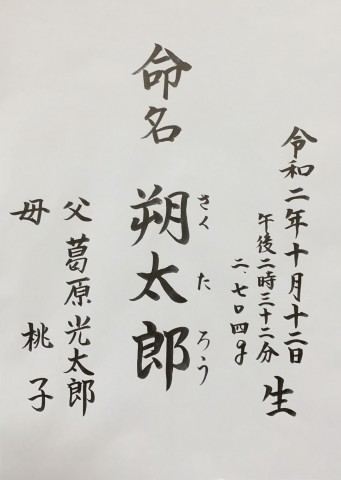 令和二年十月十二日
午後二時三十二分
二、七〇四g
生
さくたろう
命名 朔太郎
父 葛原光太郎
母 桃子